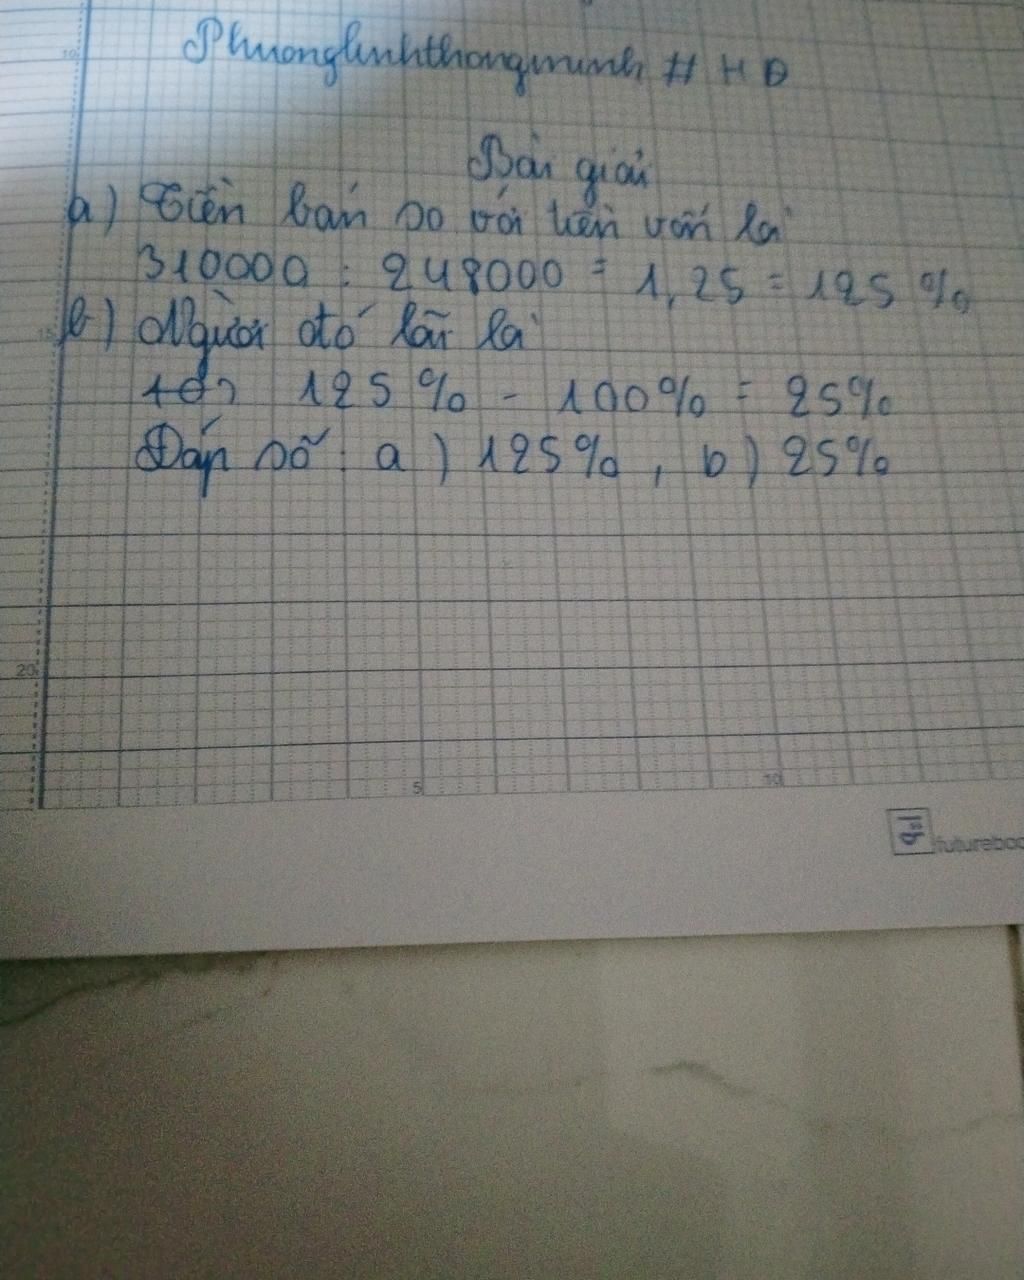 Phuonglinhthongminh # HĐ
Bài giải
a) Tiền bán so với tiền vốn là
310000 : 248000 = 1,25 = 125 %
b) Người đó lãi là
125 % - 100% = 25%
Đáp số : a ) 125% , b ) 25%
10
15
20
5
10
futureboo